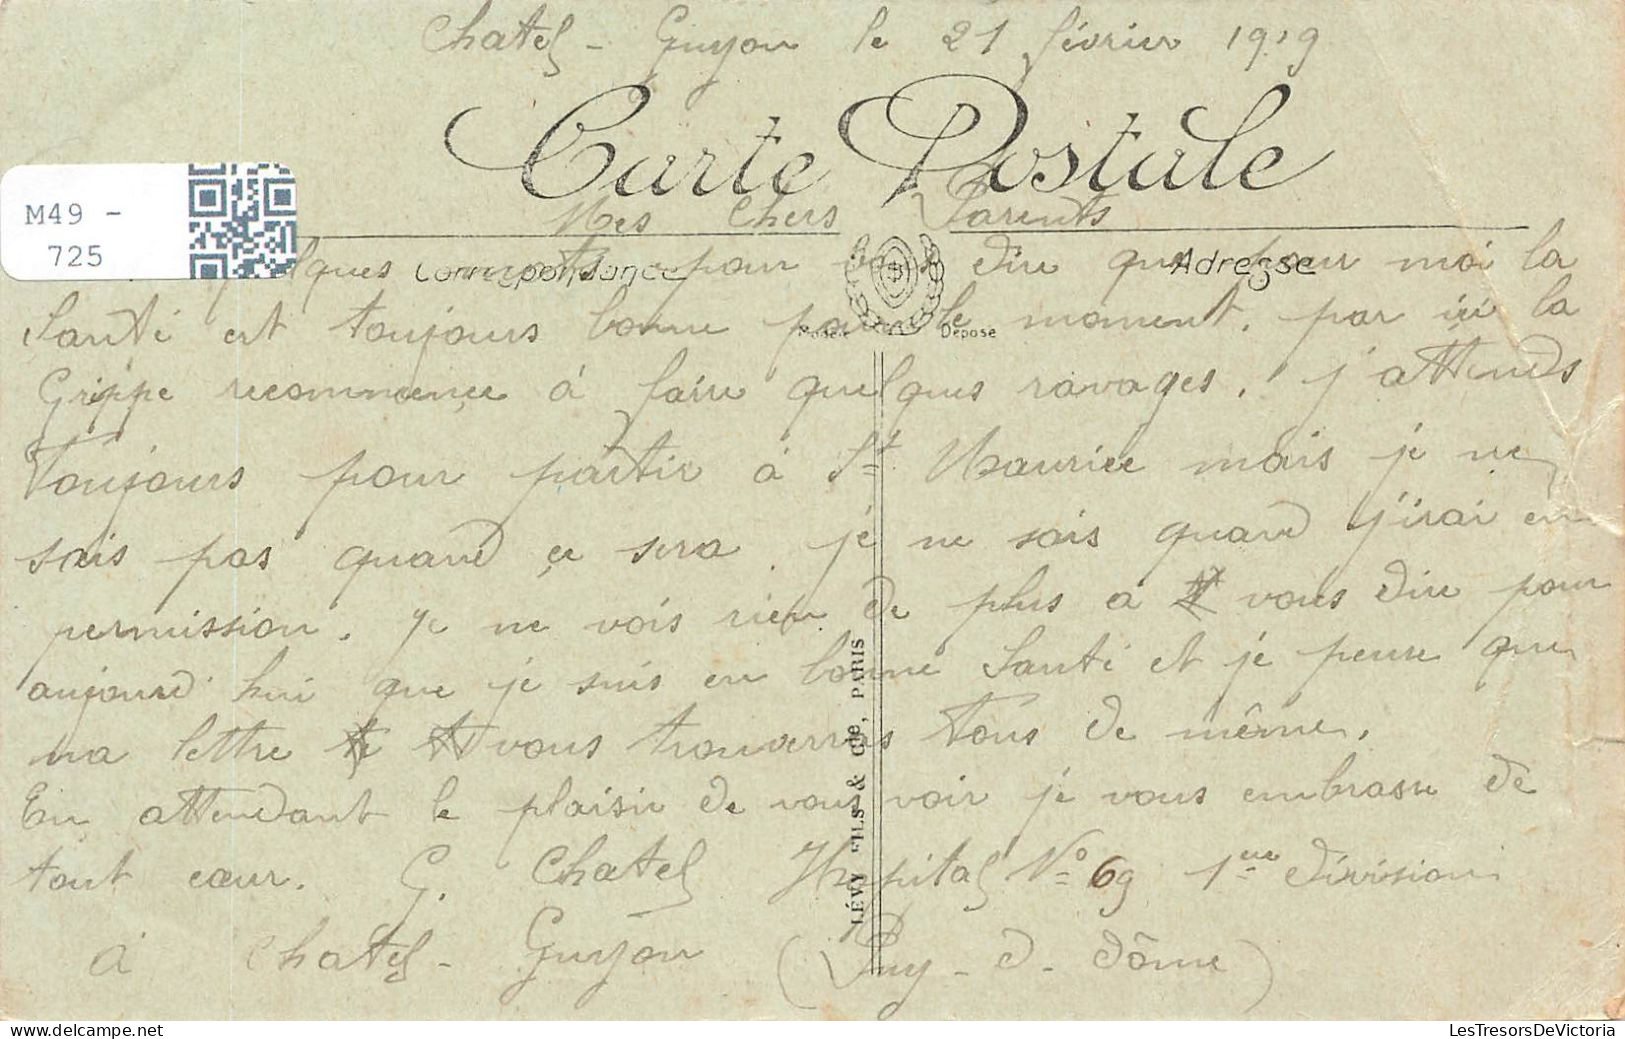 Chatel - Guyon le 21 février 1919
Carte Postale
M49 -
725
Mes Chers Parents
Correspondance
Adresse
quelques mots pour vous dire que pour moi la
Santé est toujours bonne pour le moment. par ici la
Modèle Déposé
Grippe recommence à faire quelques ravages. j'attends
Toujours pour partir à St Maurice mais je ne
sais pas quand ce sera. je ne sais quand j'irai en
permission. Je ne vois rien de plus a vous dire pour
aujourd'hui que je suis en bonne Santé et je pense que
ma lettre vous trouverras Tous de même.
En attendant le plaisir de vous voir je vous embrasse de
tout cœur. G. Chatel Hopital No 69 1ere Division
à Chatel - Guyon (Puy - d - dôme)
LÉVY FILS & Cie, PARIS
LesTresorsDeVictoria
delcampe.net